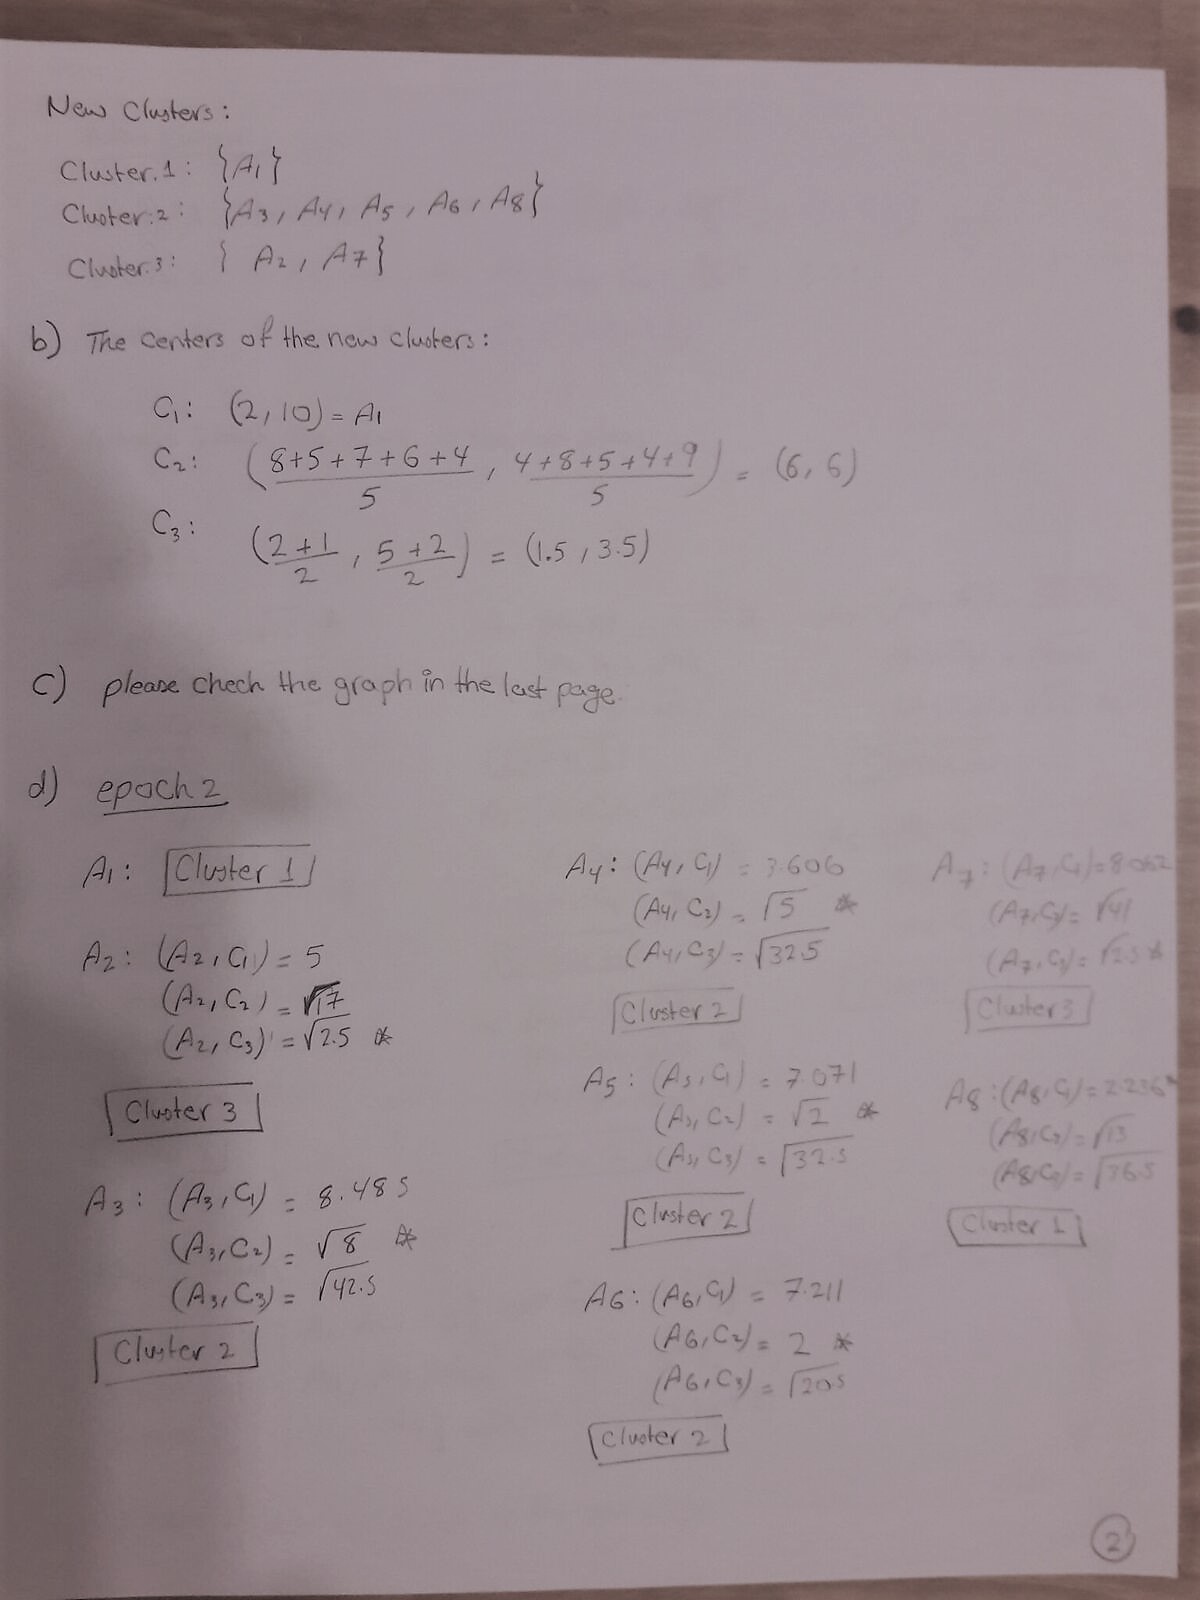 New Clusters:
Cluster.1: {A1}
Cluster.2: {A3, A4, A5, A6, A8}
Cluster.3: { A2, A7}
b) The centers of the new clusters:
C1: (2,10) = A1
C2: (8+5+7+6+4/5, 4+8+5+4+9/5) = (6,6)
C3: (2+1/2, 5+2/2) = (1.5, 3.5)
c) please chech the graph in the last page.
d) epoch 2
A1: Cluster 1
A2: (A2, C1) = 5
(A2, C2) = √17
(A2, C3) = √2.5 *
Cluster 3
A3: (A3, C1) = 8.485
(A3, C2) = √8 *
(A3, C3) = √42.5
Cluster 2
A4: (A4, C1) = 3.606
(A4, C2) = √5 *
(A4, C3) = √32.5
Cluster 2
A5: (A5, C1) = 7.071
(A5, C2) = √2 *
(A5, C3) = √32.5
Cluster 2
A6: (A6, C1) = 7.211
(A6, C2) = 2 *
(A6, C3) = √20.5
Cluster 2
A7: (A7, C1) = 8.062
(A7, C2) = √41
(A7, C3) = √2.5 *
Cluster 3
A8: (A8, C1) = 2.236 *
(A8, C2) = √13
(A8, C3) = √36.5
Cluster 1
2